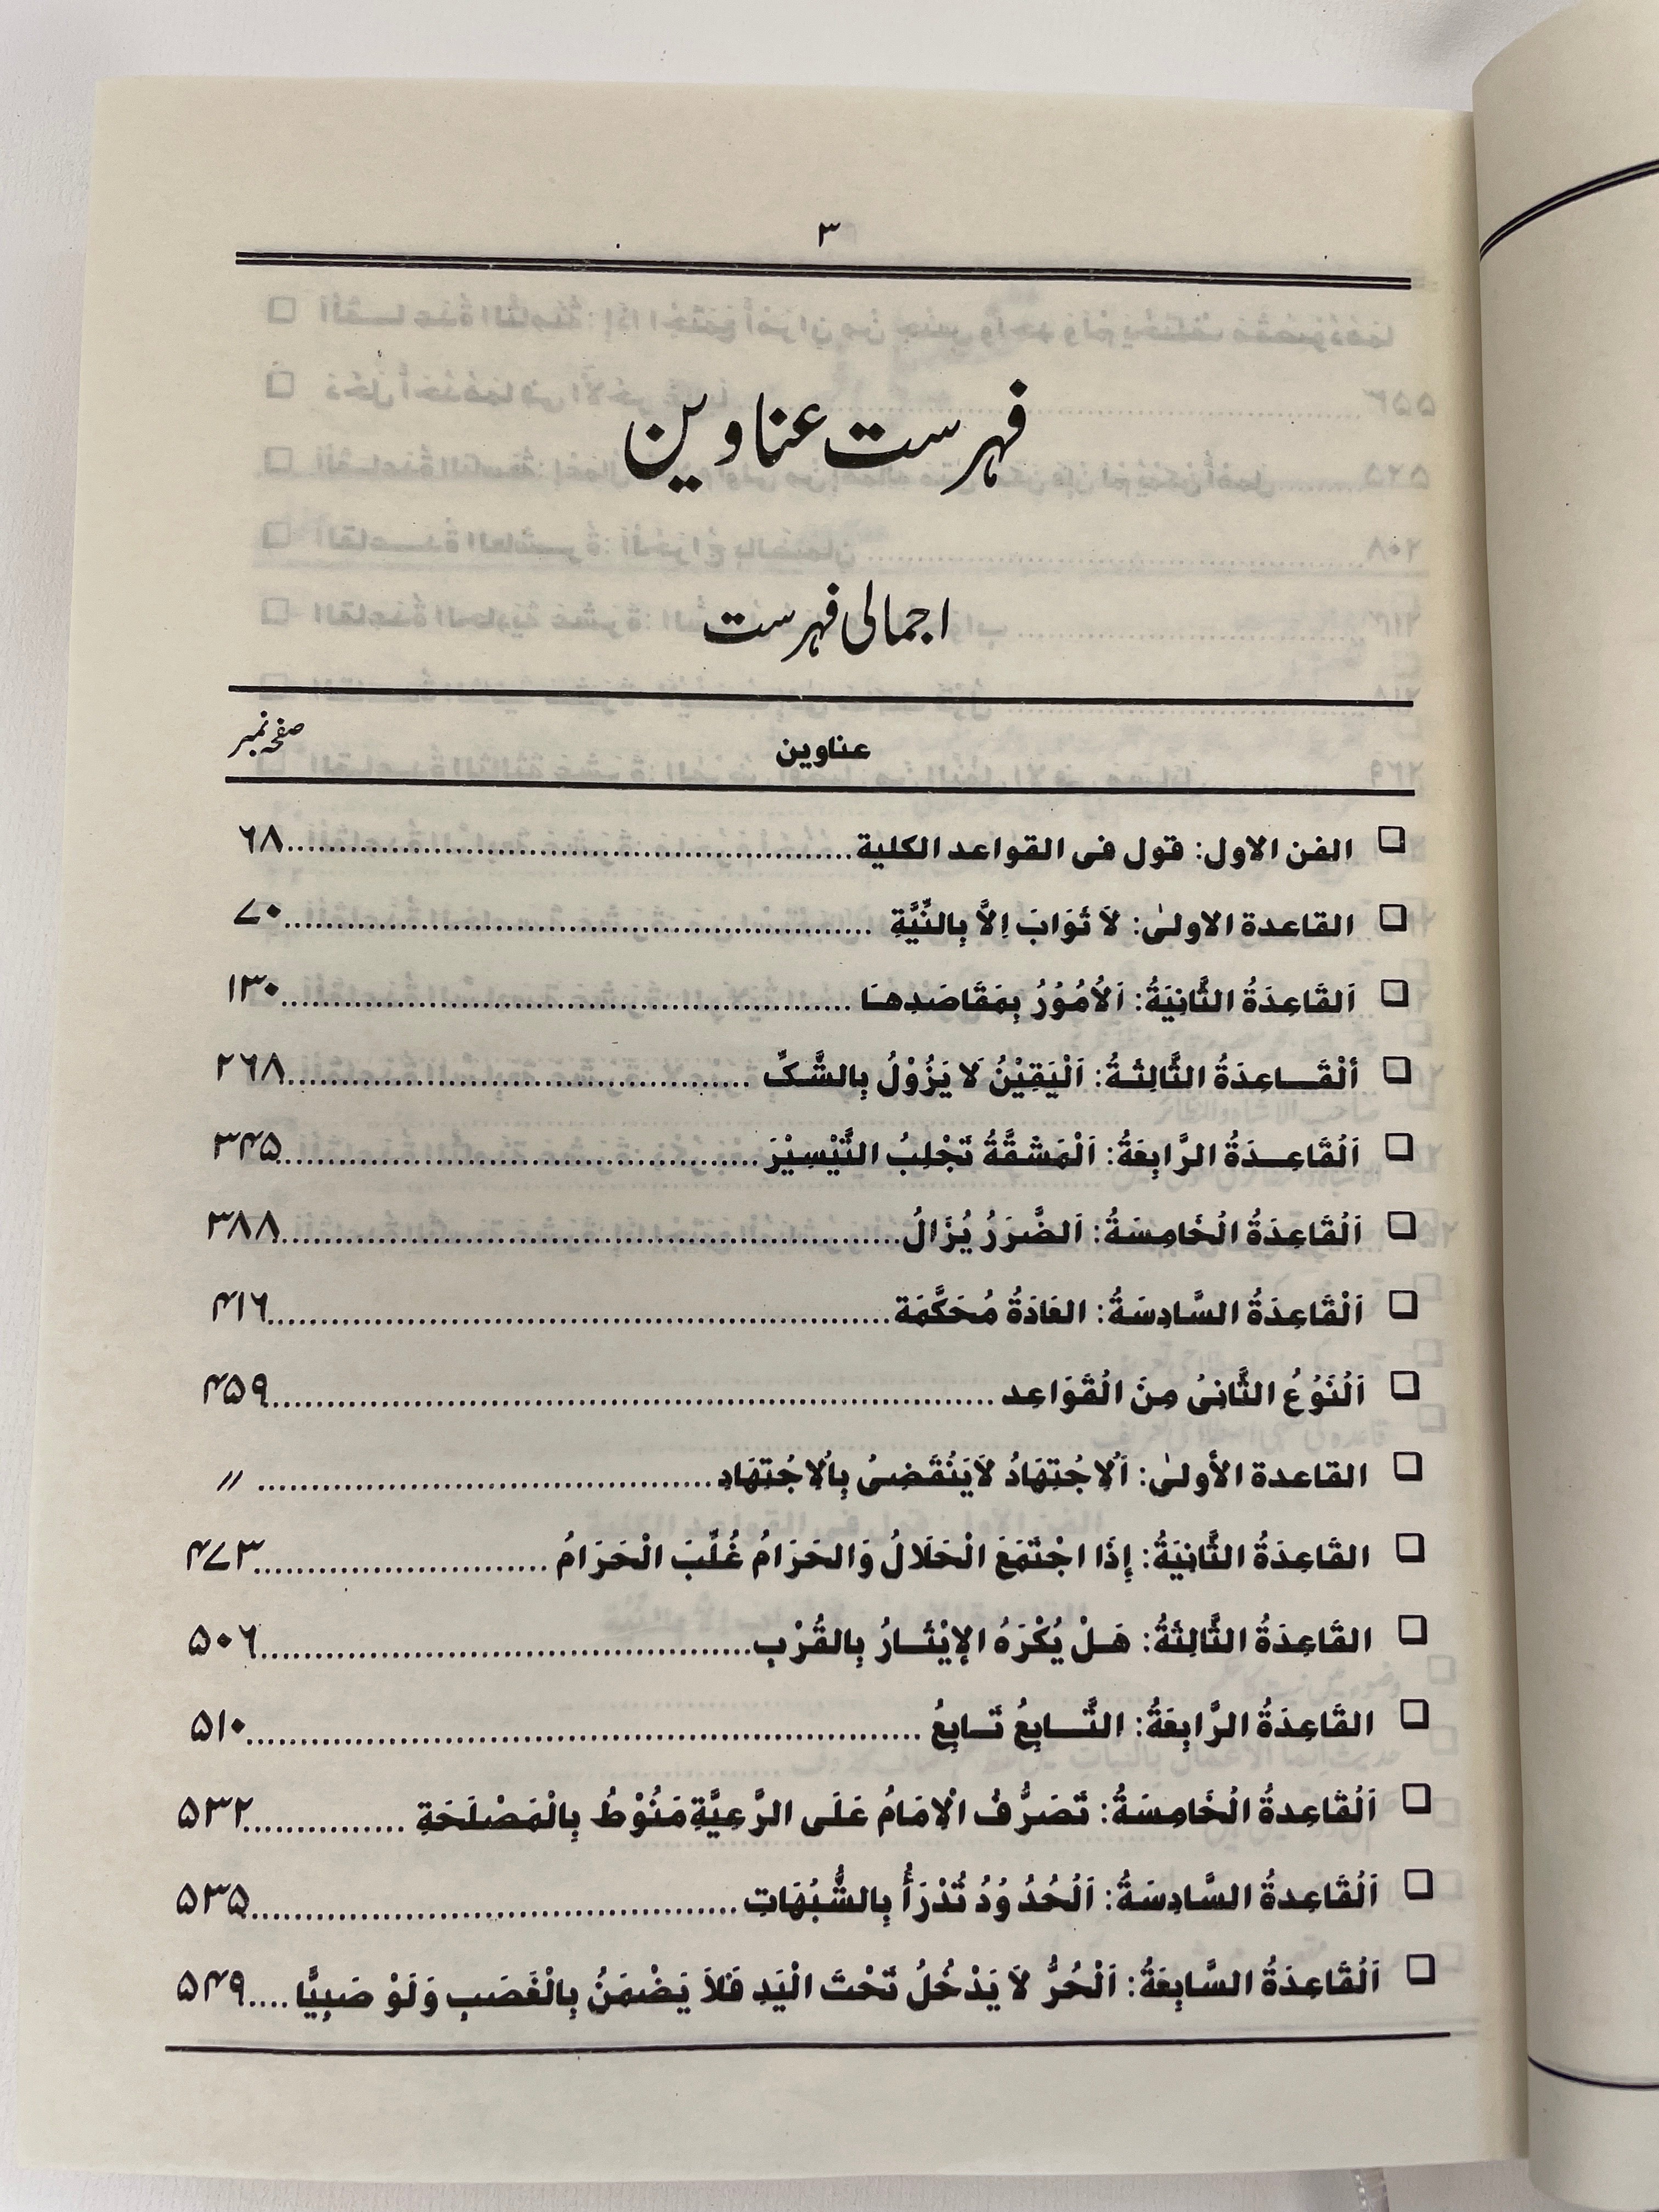 ۳
فہرست عناوین
اجمالی فہرست
عناوین صفحہ نمبر
❏ الفن الاول: قول فی القواعد الکلیة........................................ ۶۸
❏ القاعدة الاولیٰ: لَا ثَوَابَ اِلَّا بِالنِّیَّةِ ........................................ ۷۰
❏ اَلقَاعِدَةُ الثَّانِیَةُ: اَلْاُمُوْرُ بِمَقَاصَدِهَا ........................................ ۱۳۰
❏ اَلْقَاعِدَةُ الثَّالِثَةُ: اَلْیَقِیْنُ لَا یَزُوْلُ بِالشَّکِّ ........................................ ۲۶۸
❏ اَلْقَاعِدَةُ الرَّابِعَةُ: اَلْمَشَقَّةُ تَجْلِبُ التَّیْسِیْرَ........................................ ۳۴۵
❏ اَلْقَاعِدَةُ الْخَامِسَةُ: اَلضَّرَرُ یُزَالُ........................................ ۳۸۸
❏ اَلْقَاعِدَةُ السَّادِسَةُ: العَادَةُ مُحَکَّمَة........................................ ۴۱۶
❏ اَلْنَوْعُ الثَّانِیْ مِنَ الْقَوَاعِد ........................................ ۴۵۹
❏ القاعدة الأولیٰ: اَلْاِجْتِهَادُ لَایَنْقَضِیْ بِالْاِجْتِهَادِ........................................ //
❏ القَاعِدَةُ الثَّانِیَةُ: إِذَا اجْتَمَعَ الْحَلَالُ وَالحَرَامُ غُلِّبَ الْحَرَامُ ........................................ ۴۷۳
❏ القَاعِدَةُ الثَّالِثَةُ: هَلْ یُکْرَهُ الإِیْثَارُ بِالقُرْبِ........................................ ۵۰۶
❏ القَاعِدَةُ الرَّابِعَةُ: التَّابِعُ تَابِعُ ........................................ ۵۱۰
❏ اَلْقَاعِدةُ الْخَامِسَةُ: تَصَرُّفُ الْاِمَامُ عَلَی الرَّعِیَّةِ مَنُوْطُ بِالْمَصْلَحَةِ ............... ۵۳۲
❏ اَلْقَاعِدةُ السَّادِسَةُ: اَلْحُدُوْدُ تُدْرَأُ بِالشُّبُهَاتِ........................................ ۵۳۵
❏ اَلْقَاعِدَةُ السَّابِعَةُ: اَلْحُرُّ لَا یَدْخُلُ تَحْتَ الْیَدِ فَلَا یَضْمَنُ بِالْغَصَبِ وَلَوْ صَبِیًّا .... ۵۴۹